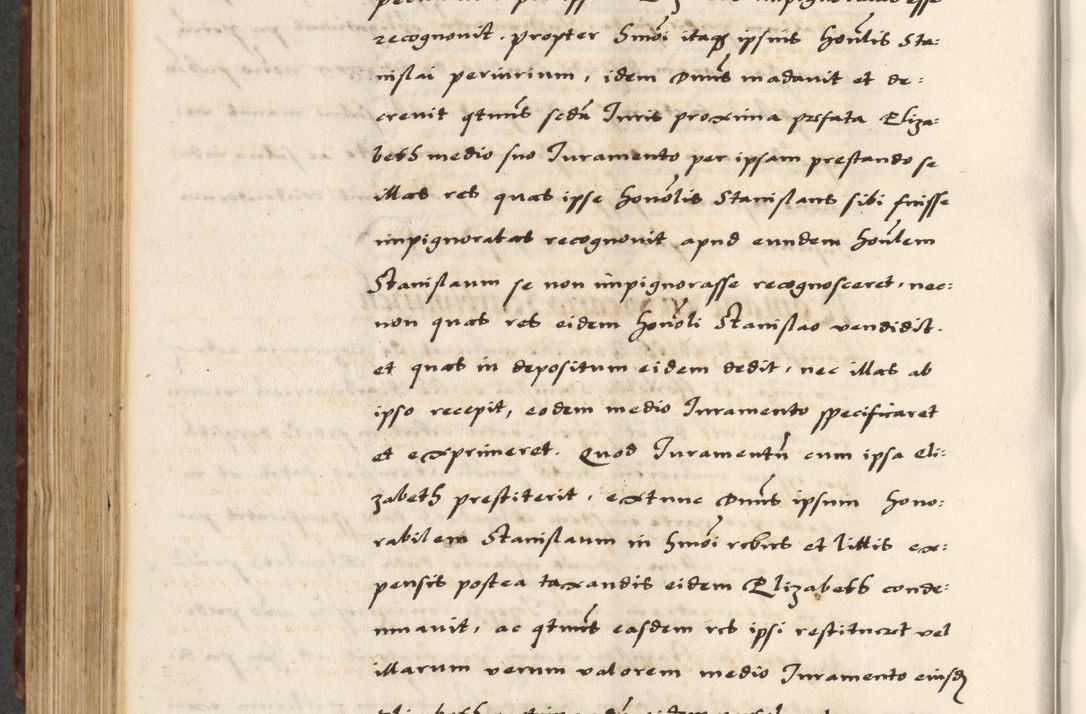 recognovit. Propter hmoi itaq ipsius honlis Sta:
nislai periurium, idem Dnus madavit et de:
crevit qtnus sedã Iuris proxima prefata Eliza:
beth medio suo Iuramento per ipsam prestando se
illas res quas ipse honolis Stanislaus sibi fuisse
impignoratas recognovit apud eundem honlem
Stanislaum se non impignorasse recognosceret, nec:
non quas res eidem honoli Stanislao vendidit.
et quas in depositum eidem dedit, nec illas ab
ipso recepit, eodem medio Iuramento specificaret
et exprimeret. Quod Iuramentũ cum ipsa Eli:
zabeth prestiterit, extunc Dnus ipsum hono:
rabilem Stanislaum in hmoi rebus et littis ex:
pensis postea taxandis eidem Elizabeth conde:
mnavit, ac qtnus easdem res ipsi restitueret vel
illarum verum valorem medio Iuramento eiusd